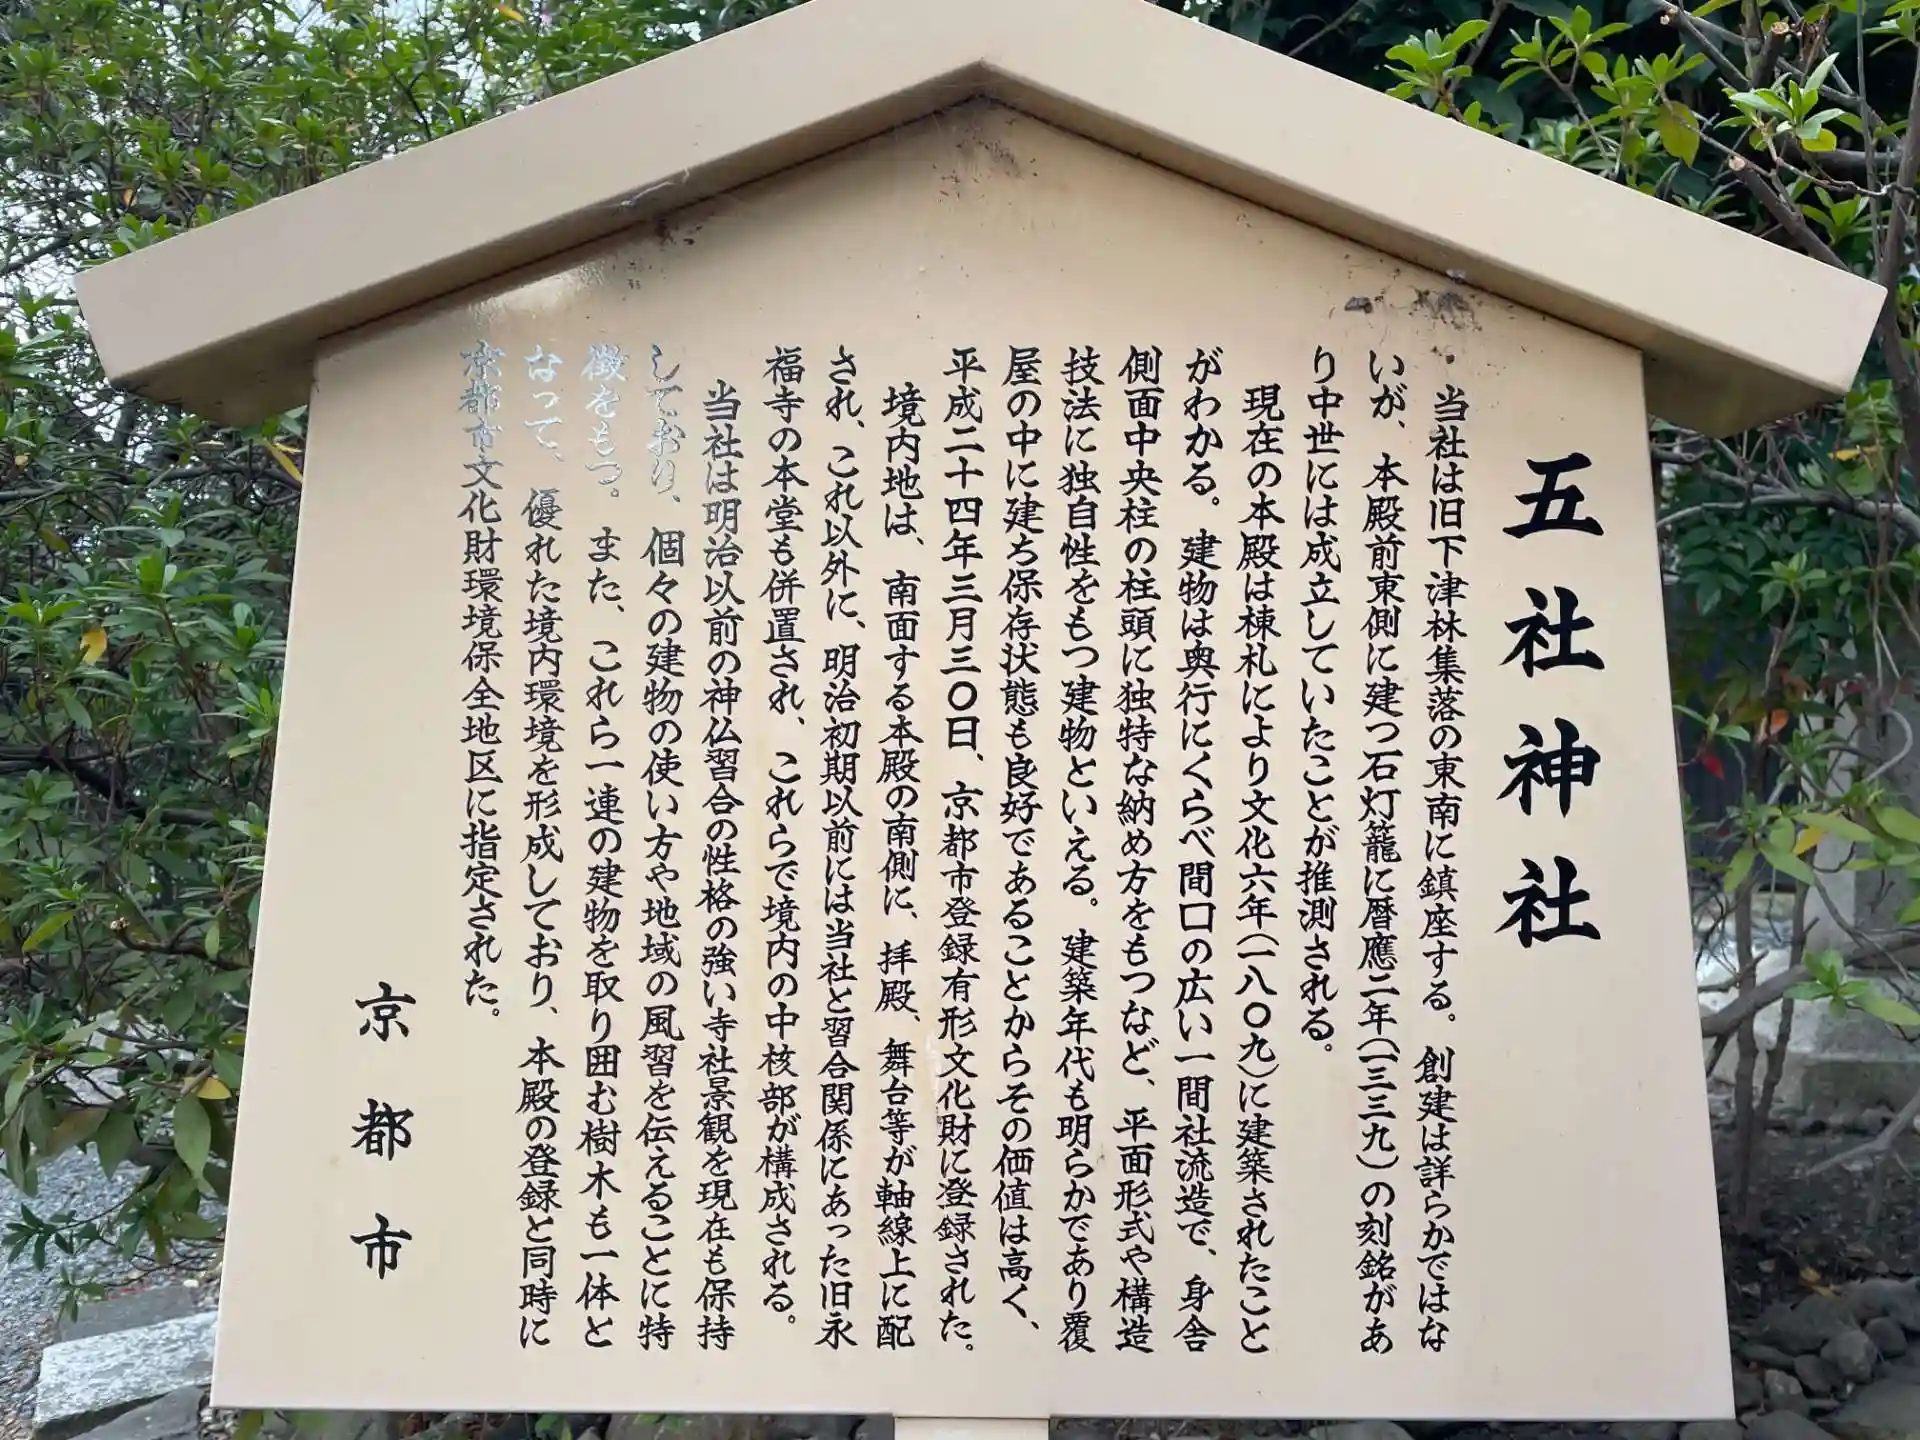 五社神社
当社は旧下津林集落の東南に鎮座する。創建は詳らかではな
いが、本殿前東側に建つ石灯籠に暦應二年(一三三九)の刻銘があ
り中世には成立していたことが推測される。
現在の本殿は棟札により文化六年(一八〇九)に建築されたこと
がわかる。建物は奥行にくらべ間口の広い一間社流造で、身舎
側面中央柱の柱頭に独特な納め方をもつなど、平面形式や構造
技法に独自性をもつ建物といえる。建築年代も明らかであり覆
屋の中に建ち保存状態も良好であることからその価値は高く、
平成二十四年三月三〇日、京都市登録有形文化財に登録された。
境内地は、南面する本殿の南側に、拝殿、舞台等が軸線上に配
され、これ以外に、明治初期以前には当社と習合関係にあった旧永
福寺の本堂も併置され、これらで境内の中核部が構成される。
当社は明治以前の神仏習合の性格の強い寺社景観を現在も保持
しており、個々の建物の使い方や地域の風習を伝えることに特
徴をもつ。また、これら一連の建物を取り囲む樹木も一体と
なって、優れた境内環境を形成しており、本殿の登録と同時に
京都市文化財環境保全地区に指定された。
京都市